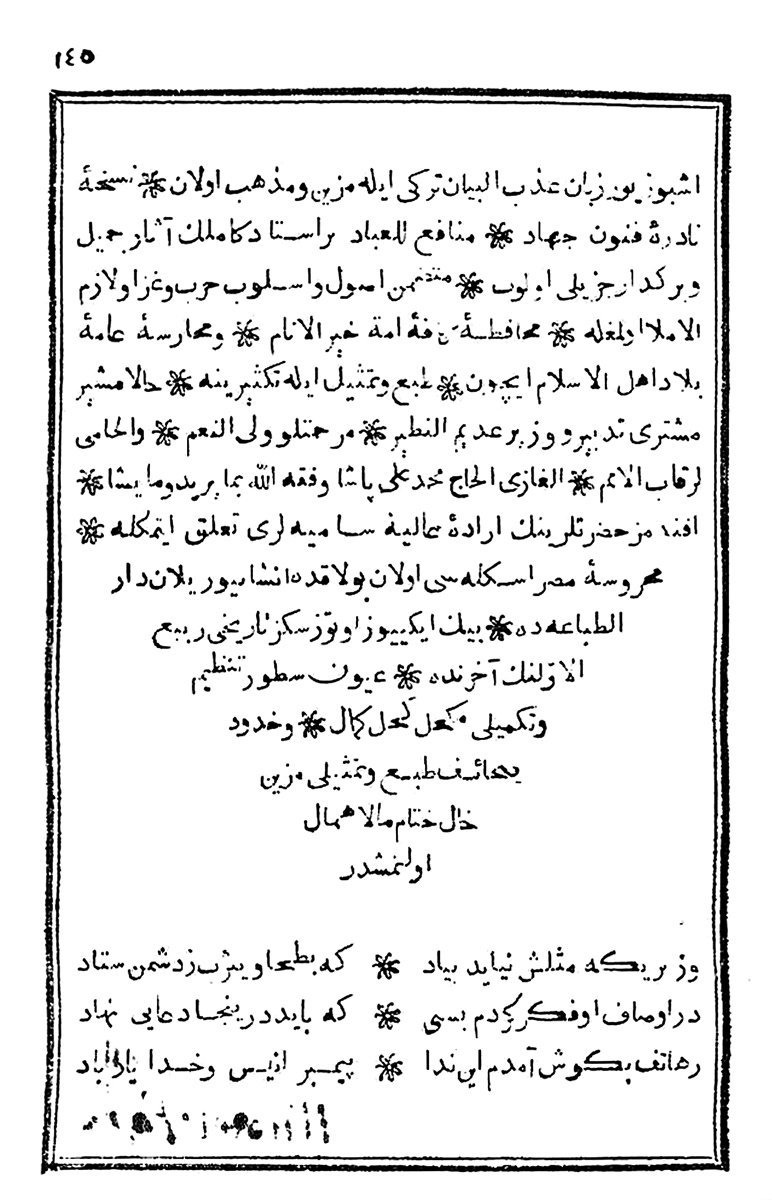 ١٤٥
اشبو زیور زبان عذب البیان ترکی ایله مزین ومذهب اولان ❊ نسخهٔ
نادرهٔ فنون جهاد ❊ منافع للعباد براستاد کاملك آثار جمیل
وبرکدار جزیلی اولوب ❊ متضمن اصول واسلوب حرب وغزا ولازم
الاملا اولغله ❊ محافظهٔ کافهٔ امة خیر الانام ❊ ومحارسهٔ عامهٔ
بلاد اهل الاسلام ایچون ❊ طبع وتمثیل ایله تکثیرینه ❊ حالا مشیر
مشتری تدبیر ووزیر عدیم النظیر ❊ مرحمتلو ولی النعم ❊ والحامی
لرقاب الامم ❊ الغازی الحاج محمد علی پاشا وفقه الله بما یرید ومایشا ❊
افندمز حضرتلرینك ارادهٔ عالیهٔ سامیه لری تعلق ایتمکله ❊
محروسهٔ مصر اسکله سی اولان بولاقده انشا بیوریلان دار
الطباعه ده ❊ بیك ایکییوز اوتوز سکز تاریخی ربیع
الاولنك آخرنده ❊ عیون سطور تنظیم
وتکمیلی مکحل کحل کمال ❊ وخدود
صحائف طبع وتمثیلی مزین
خال ختام مالاهمال
اولنمشدر
وزیریکه مثلش نیاید بیاد ❊ که بطحا ویثرب زدشمن ستاد
در اوصاف او فکر کردم بسی ❊ که باید درینجا دعایی نهاد
زهاتف بکوش آمدم این ندا ❊ پیمبر انیس وخدا یار باد